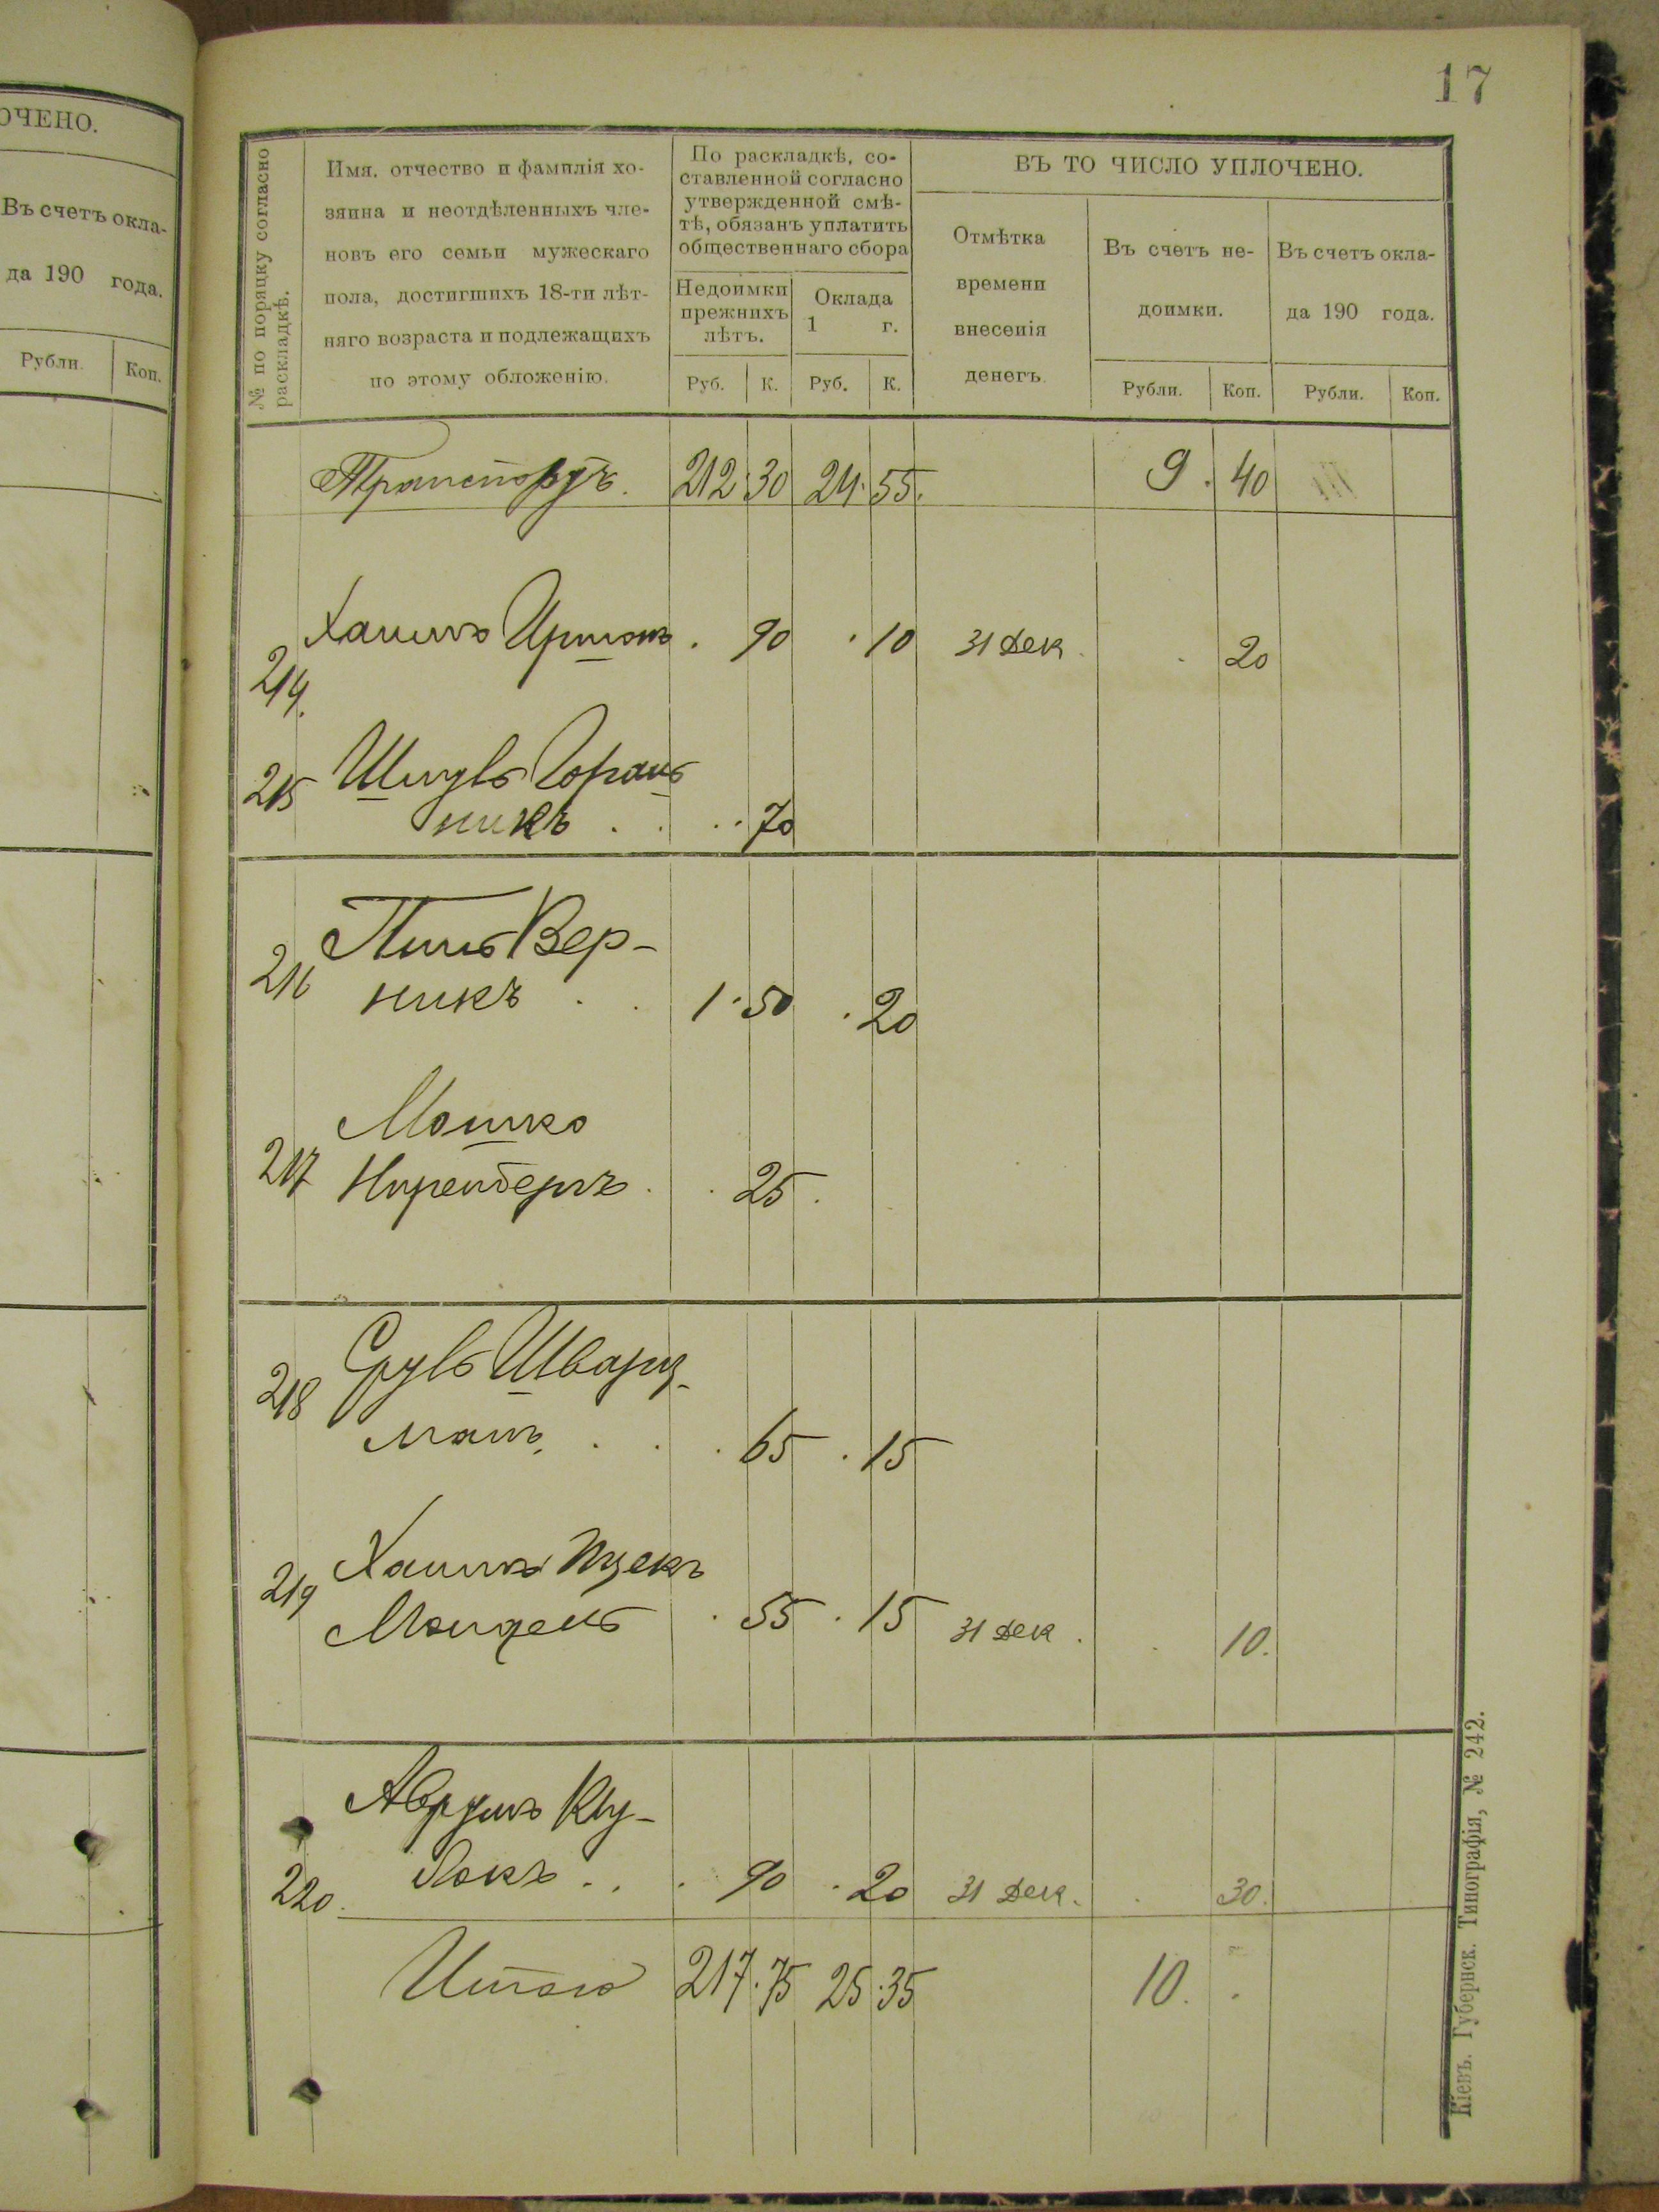 ОЧЕНО.
Въ счетъ окла-
да 190 года.
Рубли. Коп.
17
№ по поряцку согласно
раскладкѣ.
Имя, отчество и фамилія хо-
зяина и неотдѣленныхъ чле-
новъ его семьи мужескаго
пола, достигшихъ 18-ти лѣт-
няго возраста и подлежащихъ
по этому обложенію.
По раскладкѣ, со-
ставленной согласно
утвержденной смѣ-
тѣ, обязанъ уплатить
общественнаго сбора
Недоимки
прежнихъ
лѣтъ.
Оклада
1 г.
Руб. К. Руб. К.
ВЪ ТО ЧИСЛО УПЛОЧЕНО.
Отмѣтка
времени
внесенія
денегъ.
Въ счетъ не-
доимки.
Въ счетъ окла-
да 190 года.
Рубли. Коп. Рубли. Коп.
Транспортъ. 212 30 24 55. 9. 40
214. Хаимъ . 90 . 10 31 Дек. . 20
215 Шмуль
никъ . . . . 70
216 Вер-
никъ . . 1. 50 . 20
217 Мошко
Ниренбергъ . . 25.
218 Сруль Шварц-
манъ . . . 65 . 15
219 Хаимъ Ицекъ
Мендель . 55 . 15 31 Дек. . 10.
220. Аврумъ Ку-
. . . 90 . 20 31 Дек. . 30.
Итого 217. 75 25. 35 10. .
Кіевъ. Губернск. Типографія, № 242.